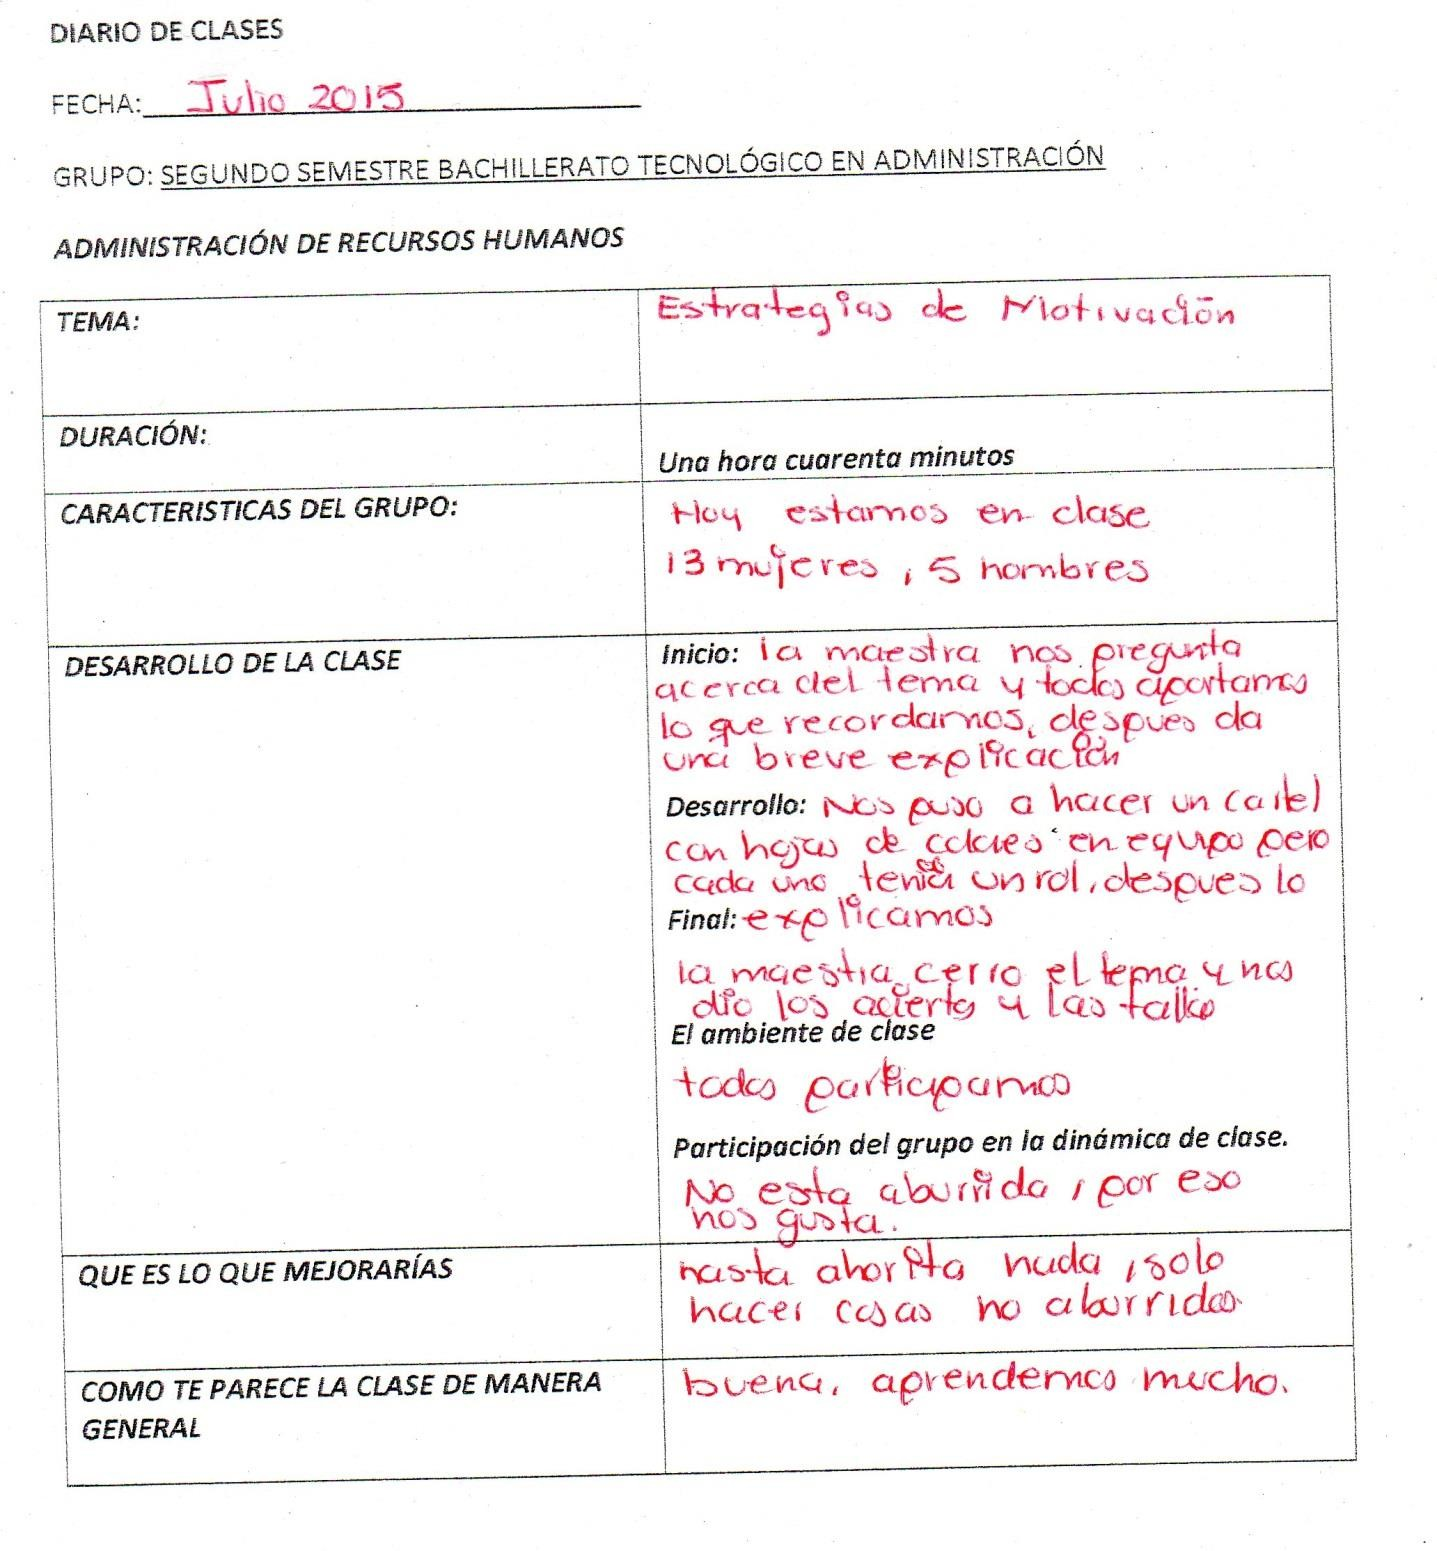 DIARIO DE CLASES
FECHA: Julio 2015
GRUPO: SEGUNDO SEMESTRE BACHILLERATO TECNOLÓGICO EN ADMINISTRACIÓN
ADMINISTRACIÓN DE RECURSOS HUMANOS
TEMA:
Estrategias de Motivación
DURACIÓN:
Una hora cuarenta minutos
CARACTERISTICAS DEL GRUPO:
Hoy estamos en clase
13 mujeres, 5 hombres
DESARROLLO DE LA CLASE
Inicio: la maestra nos pregunta
acerca del tema y todos aportamos
lo que recordamos, despues da
una breve explicación
Desarrollo: Nos puso a hacer un cartel
con hojas de colores en equipo pero
cada uno tenia un rol, despues lo
Final: explicamos
la maestra cerro el tema y nos
dio los acierto y las fallas
El ambiente de clase
todos participamos
Participación del grupo en la dinámica de clase.
No esta aburrida, por eso
nos gusta.
QUE ES LO QUE MEJORARÍAS
hasta ahorita nada, solo
hacer cosas no aburridas
COMO TE PARECE LA CLASE DE MANERA
GENERAL
buena, aprendemos mucho.